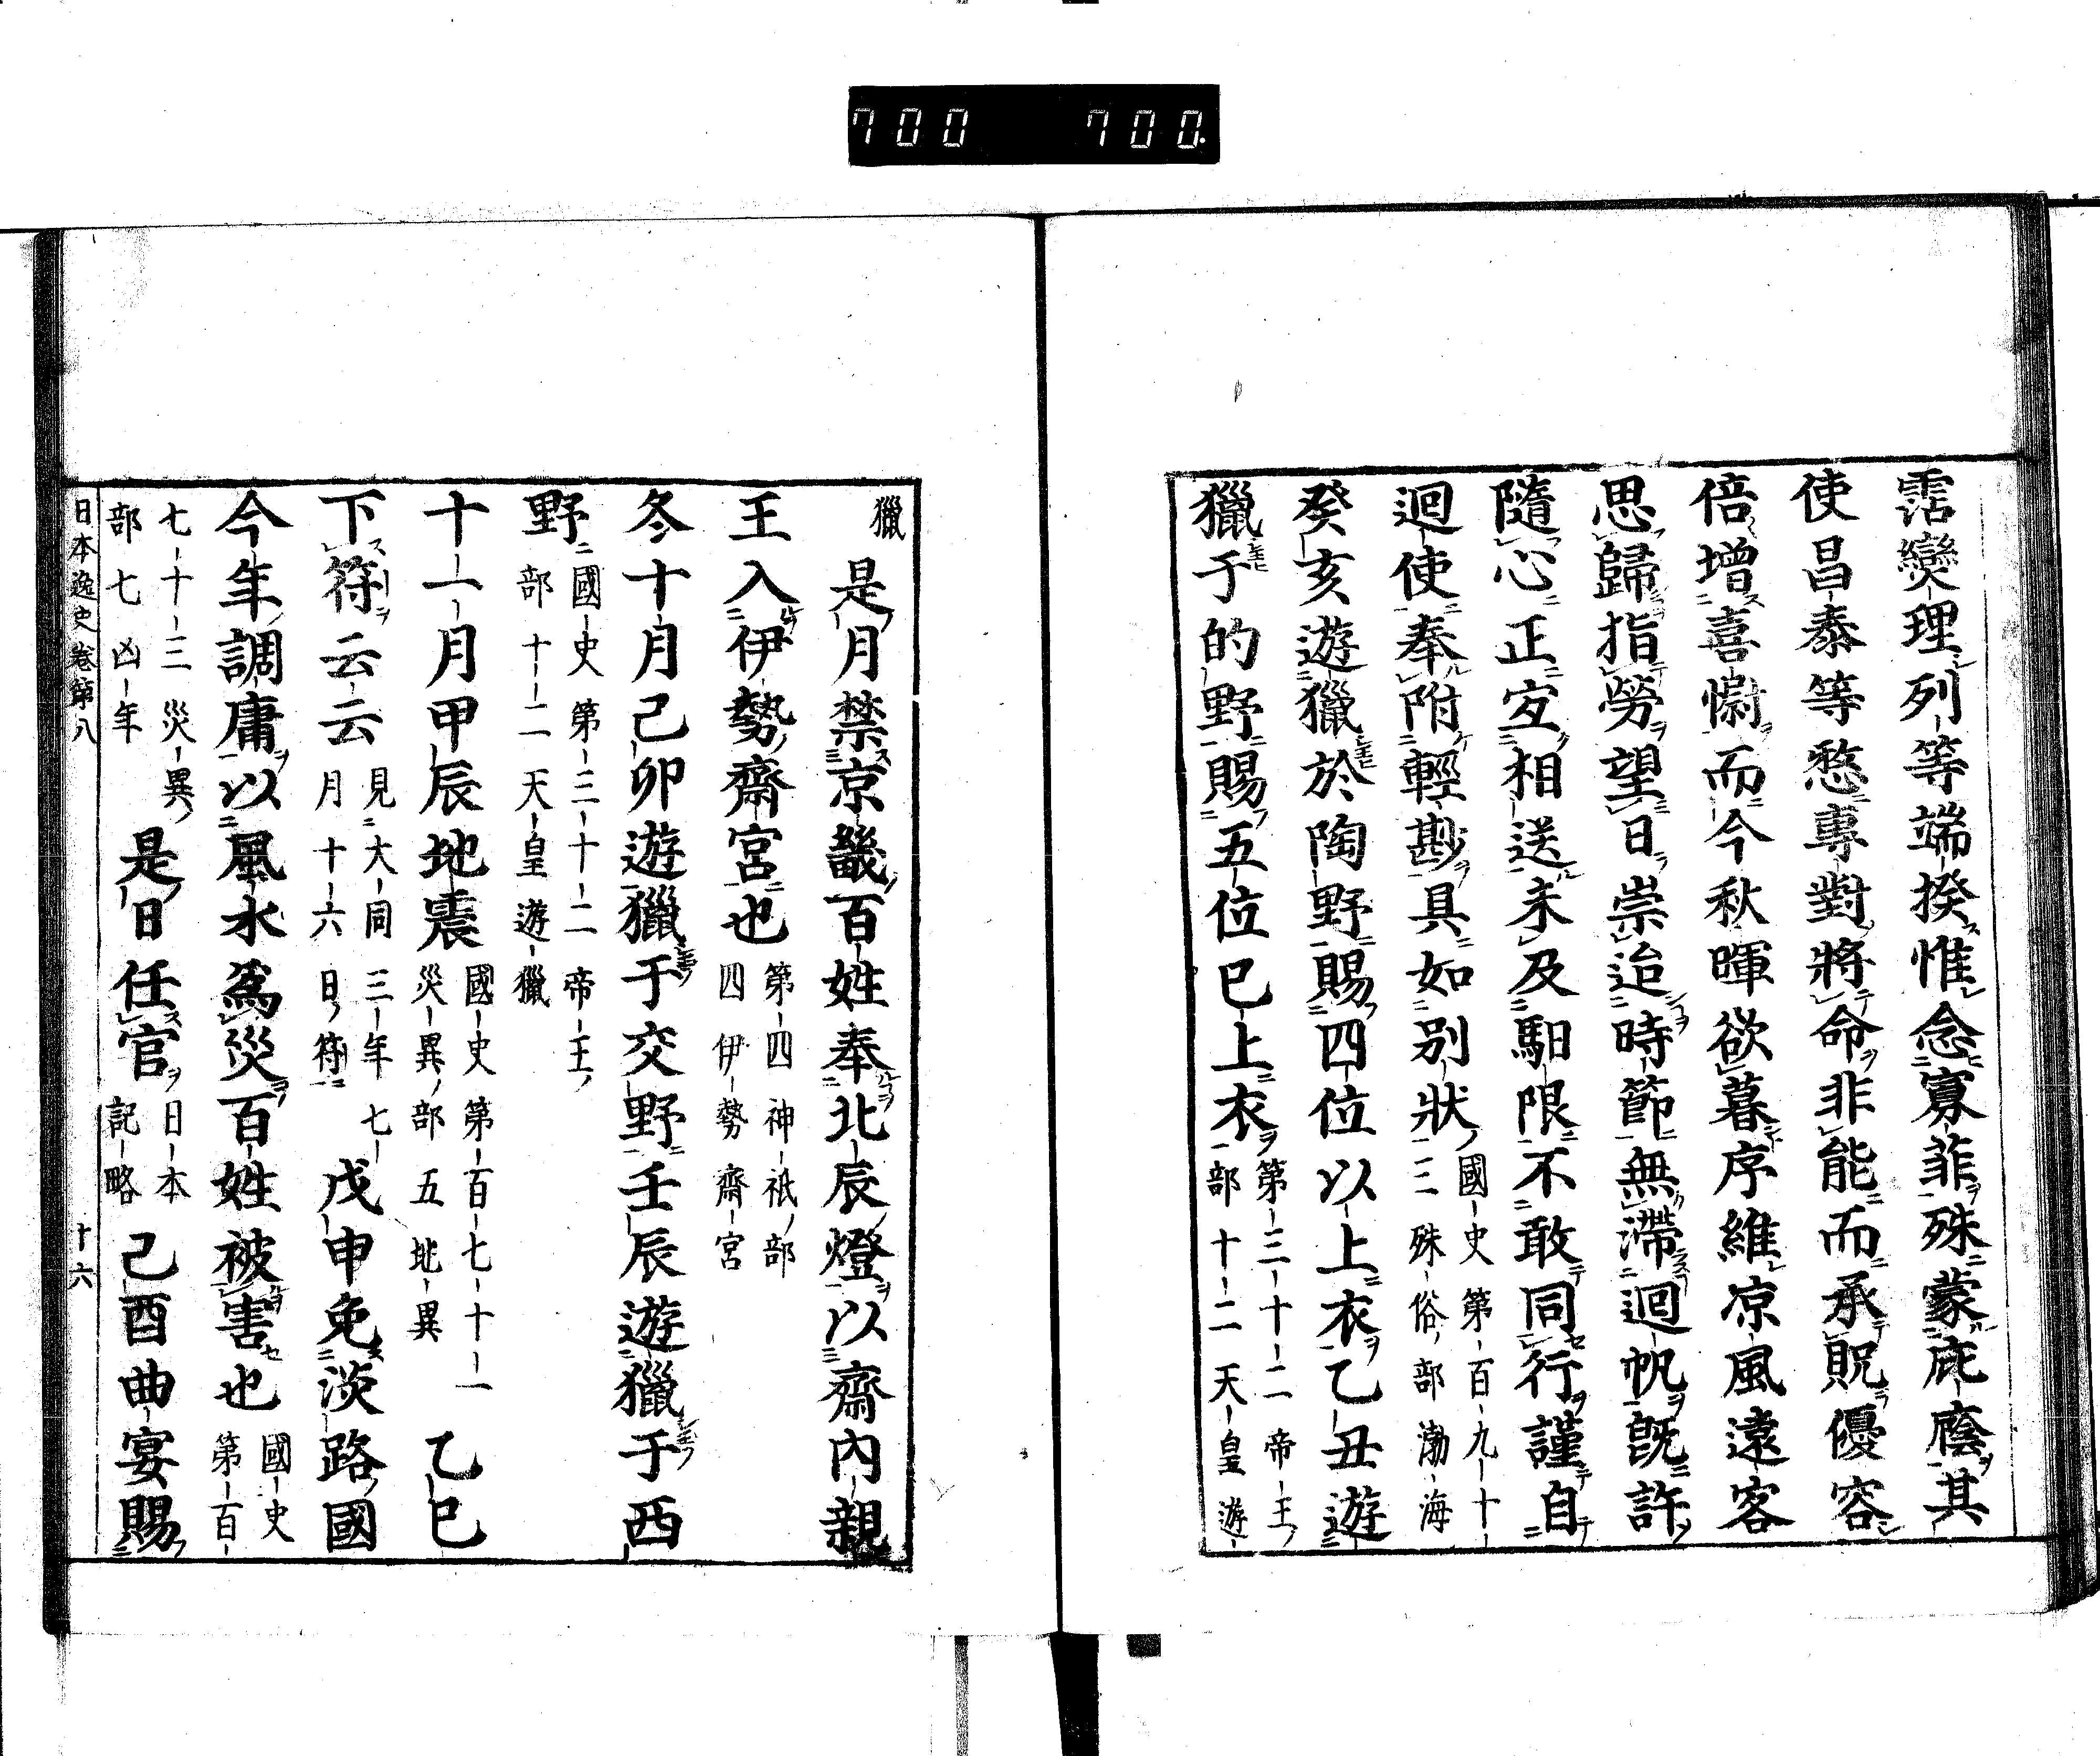 700 700
霑爕理列等端揆惟念寡菲殊蒙庇廕其
使昌泰等慙專對將命非能而承貺優容
倍增喜慰而今秋暉欲暮序維凉風遠客
思歸指勞望日崇迨時節無滯迴帆旣許
隨心正宜相送未及馹限不敢同行謹自
迴使奉附輕尠具如別狀國史第百九十
三殊俗部渤海
癸亥遊獵於陶野賜四位以上衣乙丑遊
獵于的野賜五位已上衣第三十二帝王
部十二天皇遊
獵
是月禁京畿百姓奉北辰燈以齋內親
王入伊勢齋宮也第四神祇部
四伊勢齋宮
冬十月己卯遊獵于交野壬辰遊獵于西
野國史第三十二帝王
部十二天皇遊獵
十一月甲辰地震國史第百七十一
災異部五地異
乙巳
下符云云見大同三年七
月十六日符
戊申免淡路國
今年調庸以風水爲災百姓被害也國史
第百
七十三災異
部七凶年
是日任官日本
記略
己酉曲宴賜
日本逸史卷第八
十六